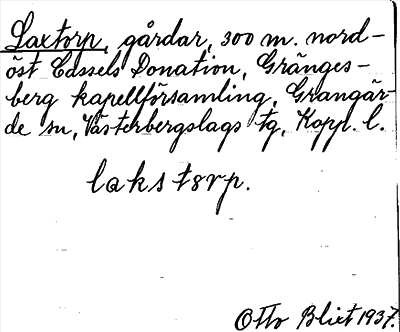 Laxtorp, gårdar, 300 m. nord-
öst Cassels Donation, Gränges-
berg kapellförsamling, Grangär-
de sn, Västerbergslags tg, Kopp. l.
lakstorp.
Otto Blixt 1937.